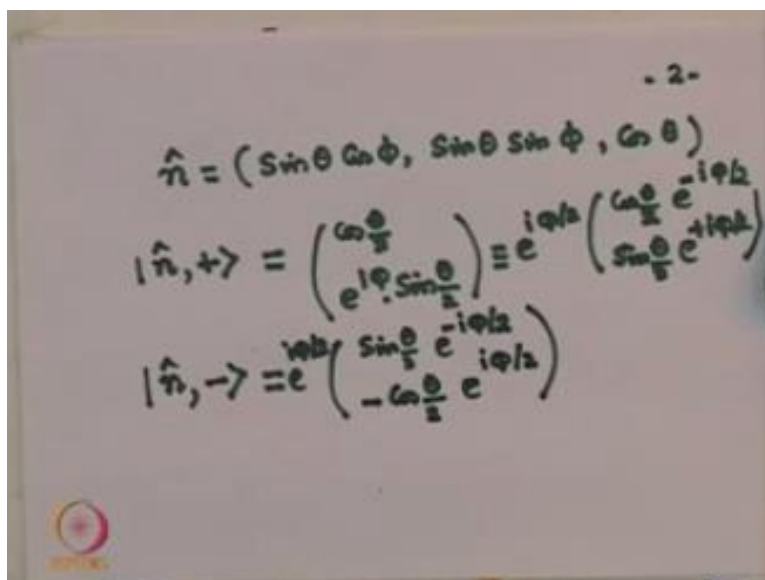 - 2 -
n̂ = (Sinθ Cosϕ, Sinθ Sinϕ, Cosθ)
|n̂,+> = ( cos θ/2 ; e^{iφ}. Sin θ/2 ) ≡ e^{iφ/2} ( cos θ/2 e^{-iφ/2} ; Sin θ/2 e^{+iφ/2} )
|n̂,-> = e^{iφ/2} ( Sin θ/2 e^{-iφ/2} ; -Cos θ/2 e^{iφ/2} )